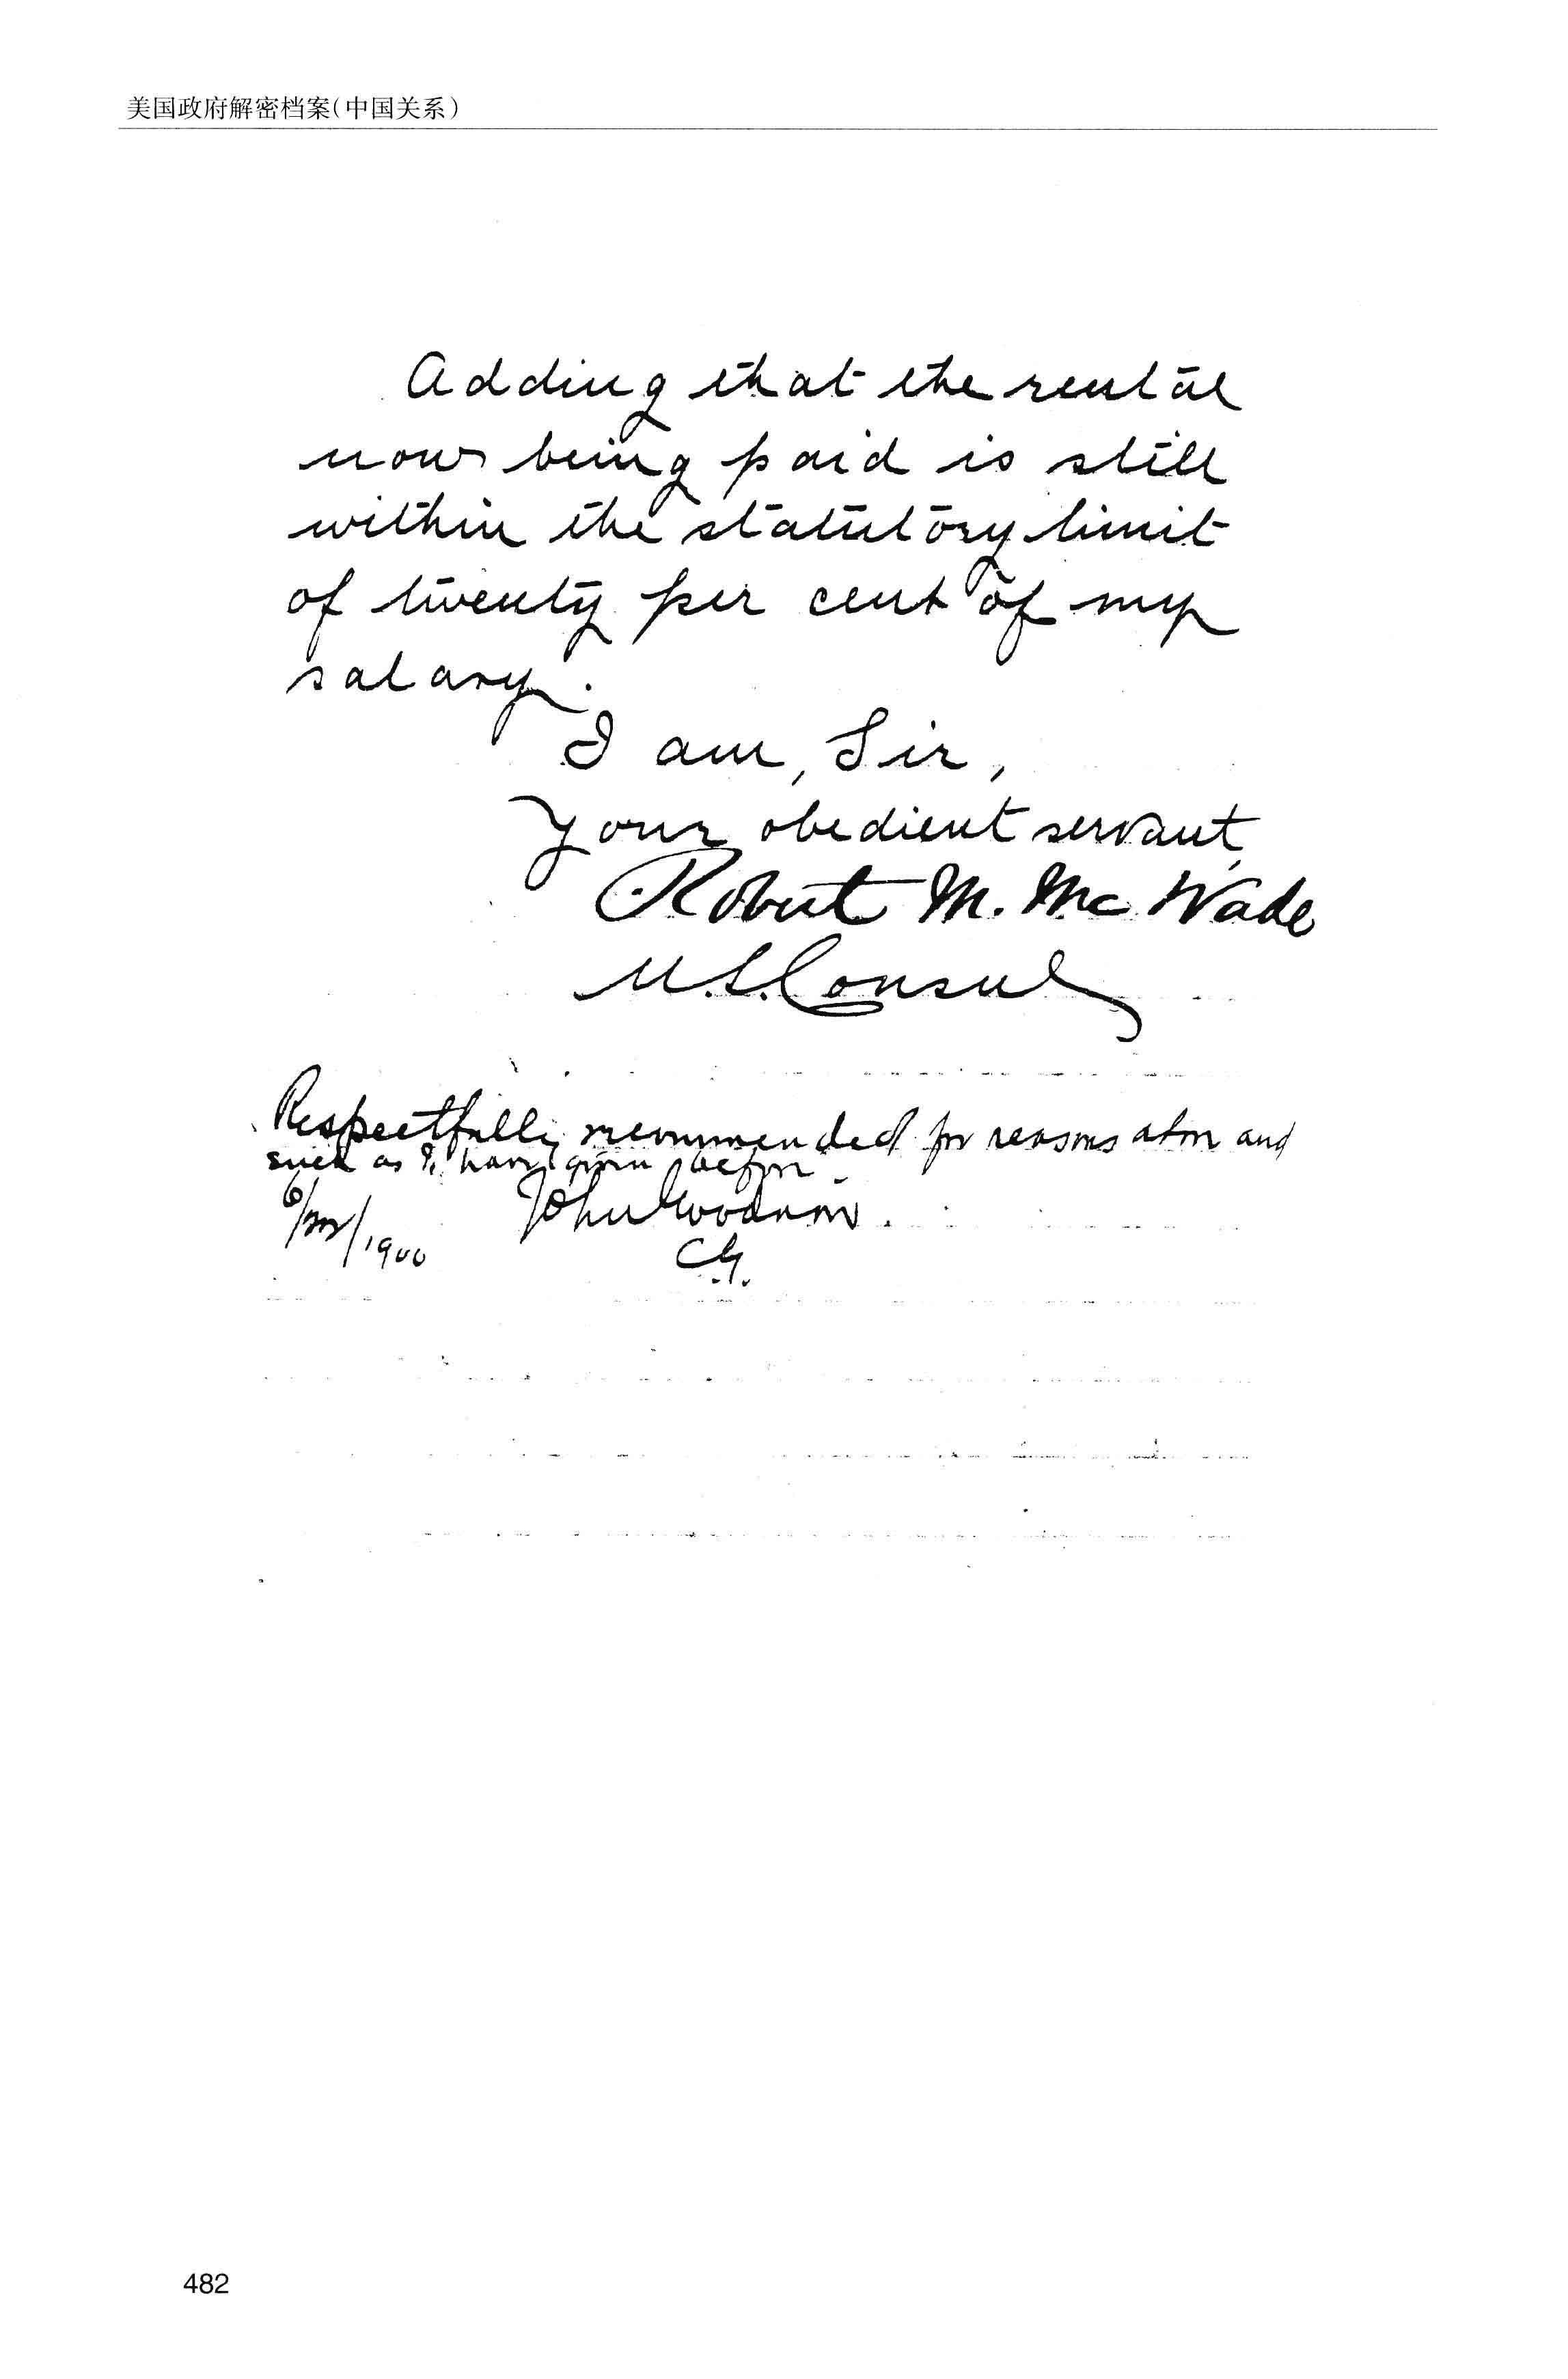 美国政府解密档案(中国关系)
Adding that the rental
now being paid is still
within the statutory limit
of twenty per cent of my
salary.
I am, Sir,
Your obedient servant,
Robert M. McWade
U.S. Consul
Respectfully recommended for reasons above and
such as I have given before.
John Goodnow.
C.G.
1900
482